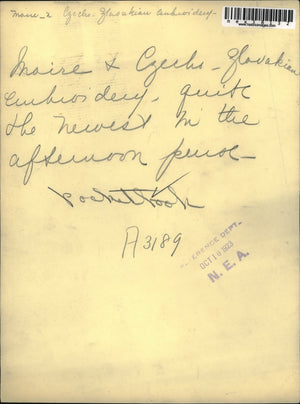 Moire & Czecho-Slovakian embroidery
Moire & Czecho-Slovakian
embroidery - quite
the newest in the
afternoon purse -
pocketbook
A3189
REFERENCE DEPT.
OCT 18 1923
N. E. A.